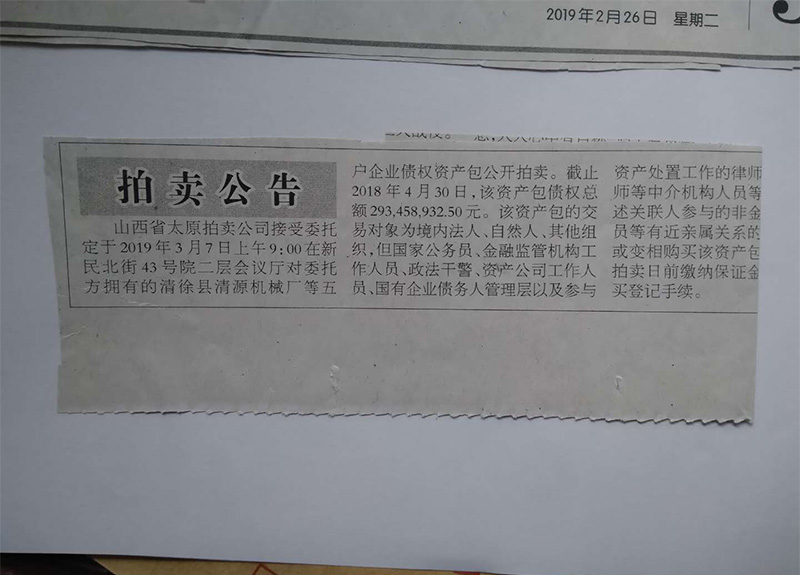 2019年2月26日 星期二
拍卖公告
山西省太原拍卖公司接受委托
定于2019年3月7日上午9:00在新
民北街43号院二层会议厅对委托
方拥有的清徐县清源机械厂等五
户企业债权资产包公开拍卖。截止
2018年4月30日,该资产包债权总
额293,458,932.50元。该资产包的交
易对象为境内法人、自然人、其他组
织,但国家公务员、金融监管机构工
作人员、政法干警、资产公司工作人
员、国有企业债务人管理层以及参与
资产处置工作的律师
师等中介机构人员等
述关联人参与的非金
员等有近亲属关系的
或变相购买该资产包
拍卖日前缴纳保证金
买登记手续。